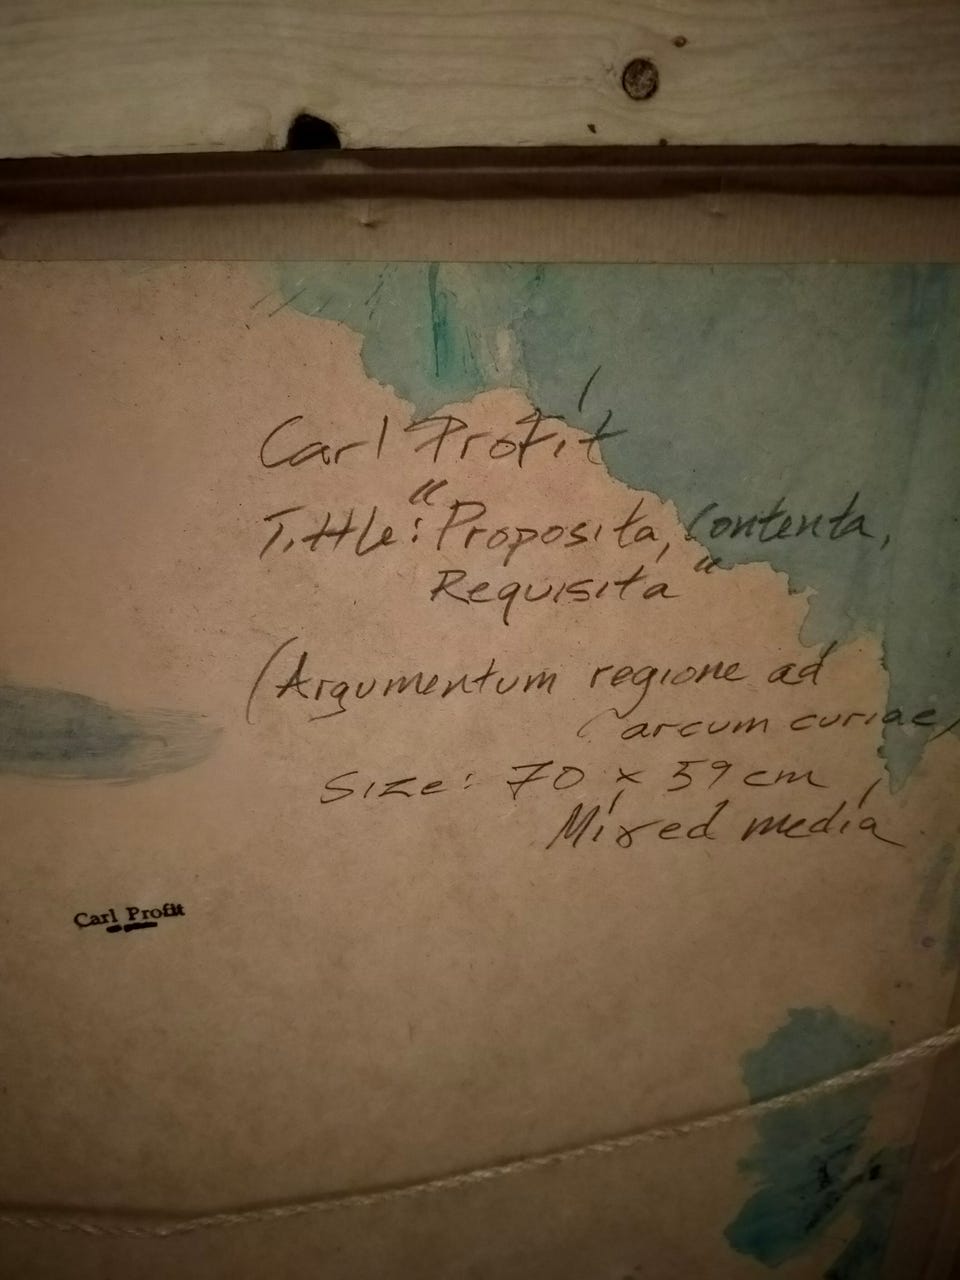 Carl Profit
Tittle: "Proposita, Contenta,
Requisita"
(Argumentum regione ad
arcum curiae)
Size: 70 x 59 cm
Mixed media
Carl Profit